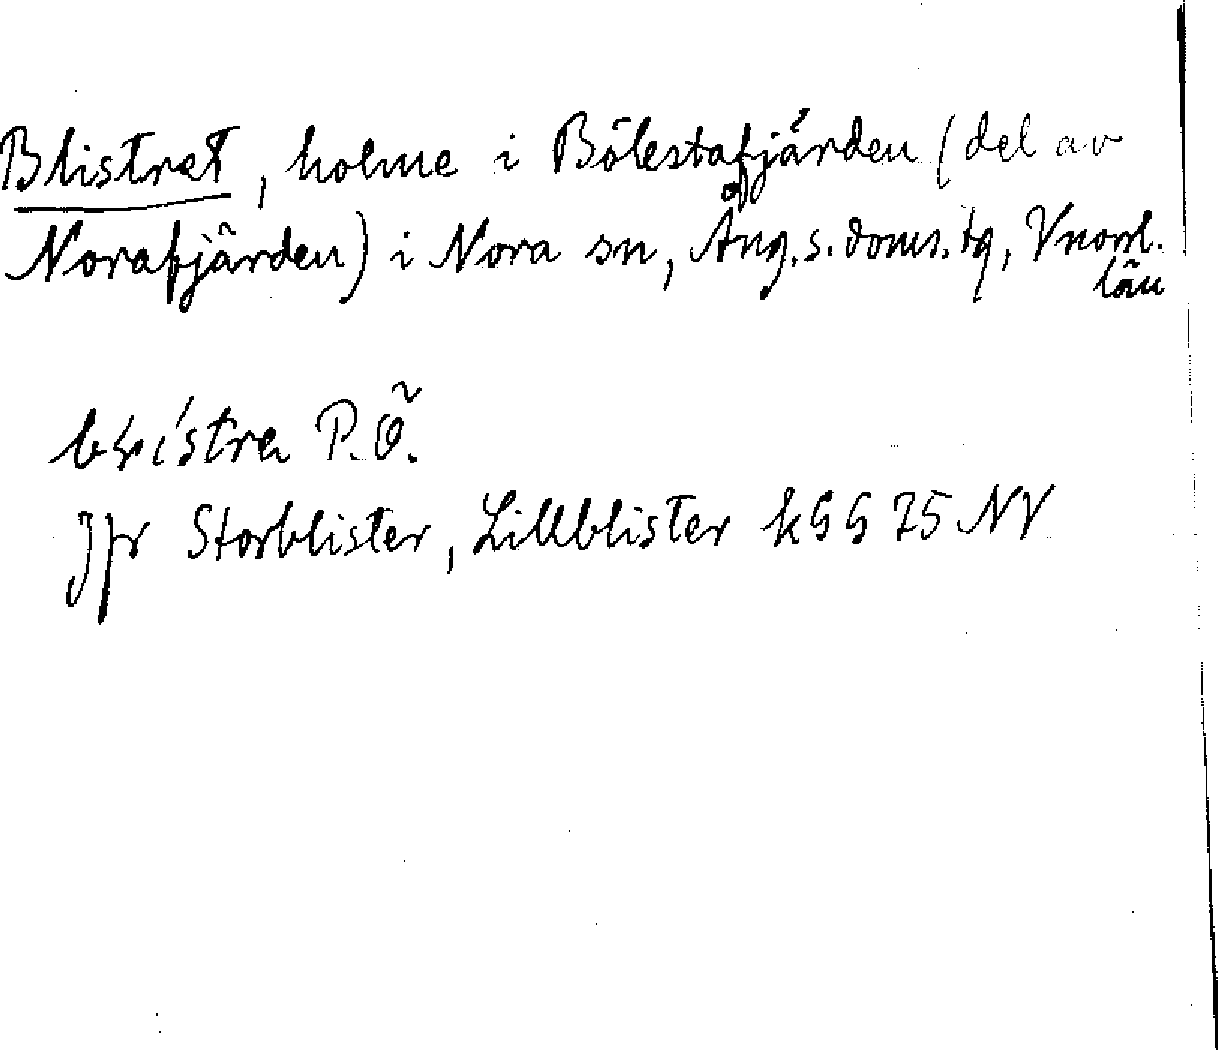 Blistret, holme i Bölestafjärden (del av
Norafjärden) i Nora sn, Ång. s. doms. tg, Vnorrl.
län
P. Ö.
Jfr Storblister, Lillblister kGG 75 NV